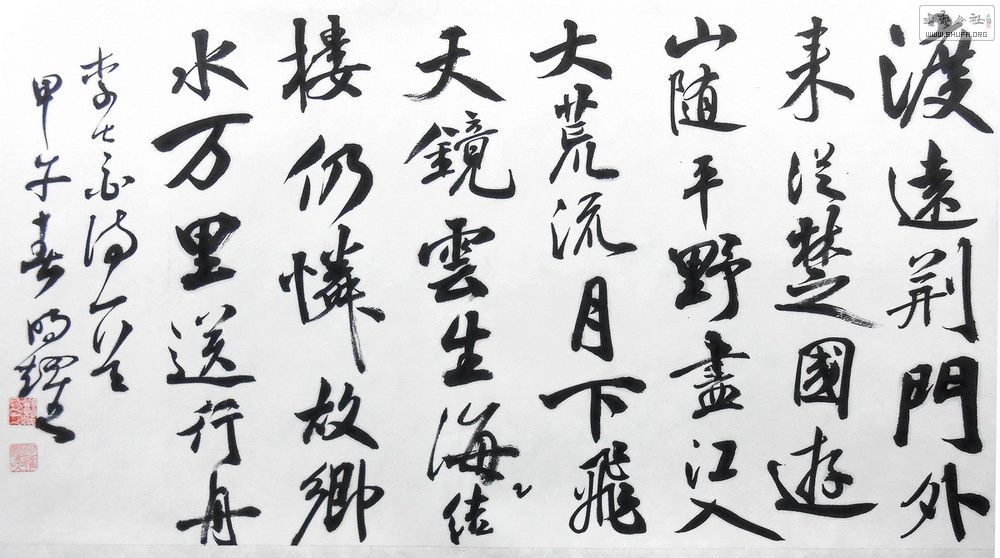 渡遠荆門外
来從楚國遊
山随平野盡江入
大荒流月下飛
天鏡雲生海结
楼仍憐故鄉
水万里送行舟
李太白诗一首
甲午春
WWW.SHUFA.ORG